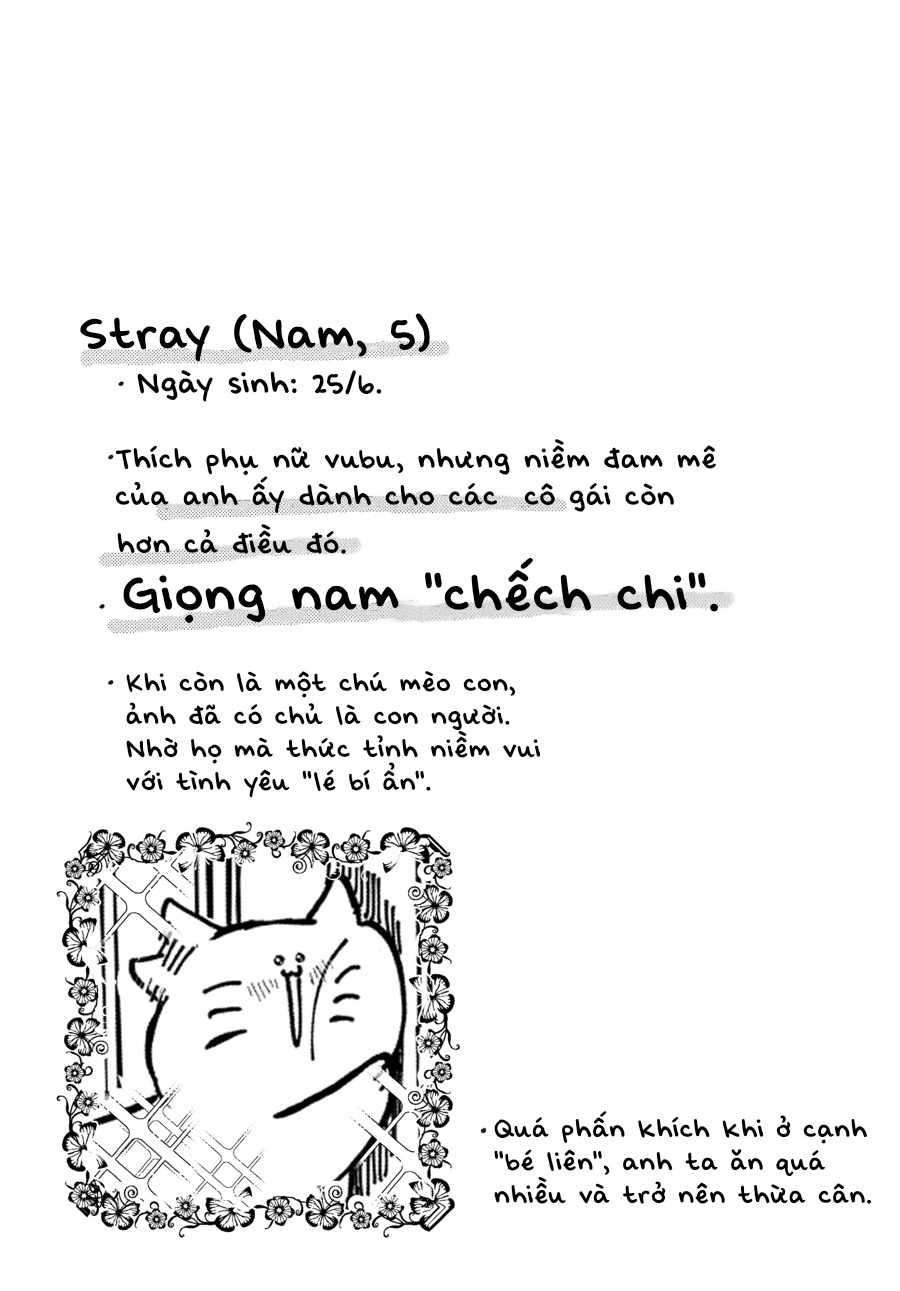 Stray (Nam, 5)
· Ngày sinh: 25/6.
·Thích phụ nữ vubu, nhưng niềm đam mê
của anh ấy dành cho các cô gái còn
hơn cả điều đó.
· Giọng nam "chếch chi".
· Khi còn là một chú mèo con,
ảnh đã có chủ là con người.
Nhờ họ mà thức tỉnh niềm vui
với tình yêu "lé bí ẩn".
· Quá phấn khích khi ở cạnh
"bé liên", anh ta ăn quá
nhiều và trở nên thừa cân.